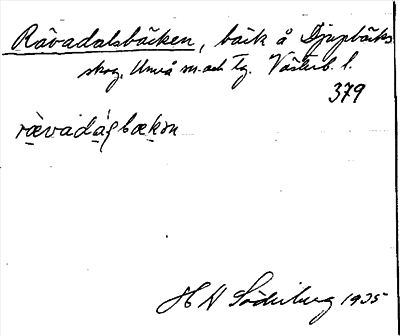 Rävadalsbäcken, bäck å Djupbäcks
skog, Umeå sn. och tg. Västerb. l.
379
rävadágbækən
H N Söderberg 1935